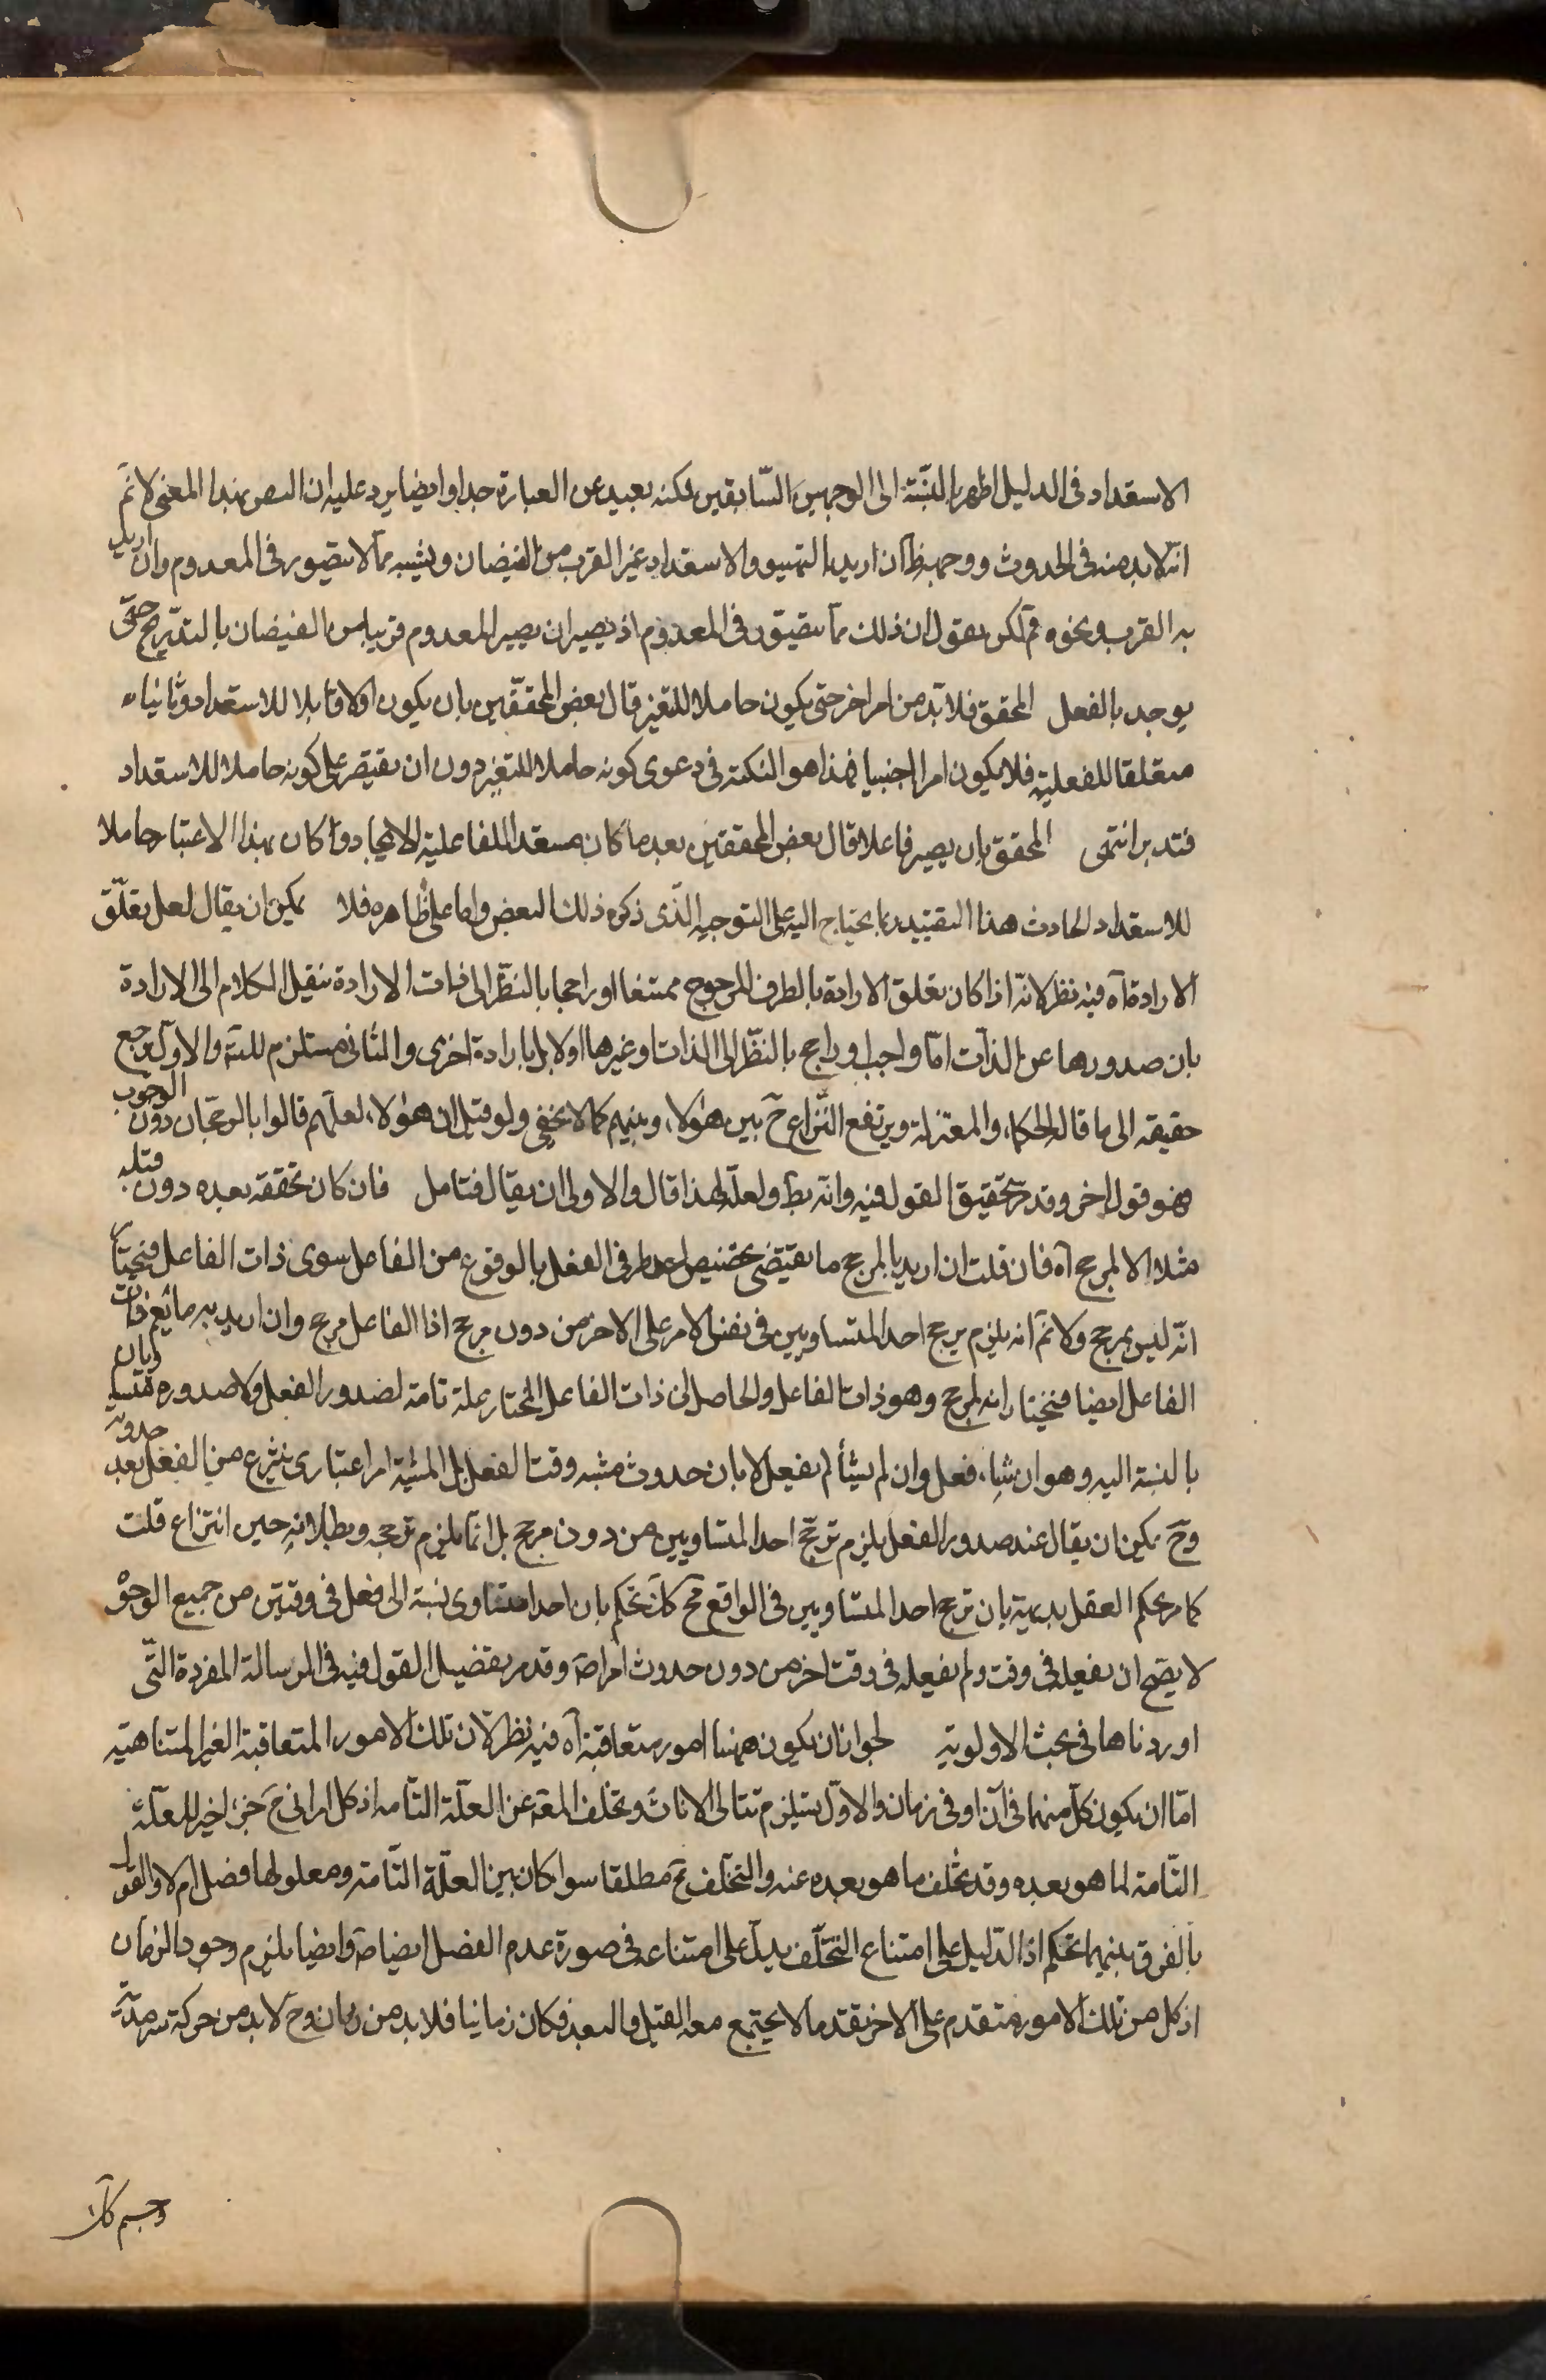 الاستعداد فى الدليل اظهر بالنسبة الى الوجهين السّابقين لكنه بعيد عن العبارة جدا وايضا يرد عليه ان التصر بهذا المعنى لا نم
انه لابد منه فى الحدوث ووجهه ظ ان اريد بالتهيو والاستعداد غير القرب من الفيضان ويشبه مما لا يتصور فى المعدوم وان اريد
به القرب ونحوه فم لكن نقول ان ذلك مما يتصور فى المعدوم اذ يصير ان يصير المعدوم قريبا من الفيضان بالتدريج حتّى
يوجد بالفعل المحقق فلا بد من امر اخر حتى يكون حاملا للتغير قال بعض المحققين بان يكون اولا قابلا للاستعداد وثانيا
متعلقا للفعلية فلا يكون امرا اجنبيا فهذا هو النكتة فى دعوى كونه حاملا للتغير دون ان يقتصر على كونه حاملا للاستعداد
فتدبر انتهى المحقق بان يصير فاعلا قال بعض المحققين بعد ما كان مستعدا للفاعلية الايجاد وان كان بهذا الاعتبار حاملا
للاستعداد الحادث هذا التقييد بما يحتاج اليه على التوجيه الذى ذكره ذلك البعض واما على ظاهره فلا يمكن ان يقال لعل تعلّق
الارادة آه فيه نظر لانه اذا كان تعلق الارادة بالطرف المرجوح ممتنعا او راجحا بالنظر الى ذات الارادة ننقل الكلام الى الارادة
بان صدورها عن الذات امّا واجب او راجح بالنظر الى الذات او غيرها اولا بل بارادة اخرى والثانى مستلزم للتسـ والاول يرجع
حقيقه الى ما قاله الحكماء والمعتزلة ويرتفع النزاع ح بين هؤلاء وبينهم كما لا يخفى ولو قيل ان هؤلاء لعلهم قالوا بالرجحان دون الوجوب
فهو قول اخر وقد مر تحقيق القول فيه وانه بط ولعله لهذا قال والاولى ان يقال فتامل فان كان تحققه بعده دون قبله
مثلا لا لمرجح آه فان قلت ان اريد بالمرجح ما يقتضى تخصيص احد طرفى الفعل بالوقوع من الفاعل سوى ذات الفاعل فنختار
انه ليس بمرجح ولا نم انه يلزم ترجح احد المتساويين فى نفس الامر على الاخر من دون مرجح اذ الفاعل مرجح وان اريد به ما يعم ذات
الفاعل ايضا فنختار انه لمرجح وهو ذات الفاعل والحاصل ان ذات الفاعل المختار علة تامة لصدور الفعل ولا صدوره متساويان
بالنسبة اليه وهو ان شاء فعل وان لم يشأ لم يفعل لا بان حدوث مشيه وقت الفعل بل المشية امر اعتبارى ينتزع من الفعل بعد حدوثه
وح يمكن ان يقال عند صدور الفعل يلزم ترجح احد المتساويين من دون مرجح بل انما يلزم ترجحه وبطلانه حين انتزاع قلت
كما يحكم العقل بديهية بان ترجح احد المتساويين فى الواقع مح كك نحكم بان احدا متساوى نسبة الى فعل فى وقتين من جميع الوجوه
لا يصح ان يفعله فى وقت ولم يفعله فى وقت اخر من دون حدوث امر اصـ وقد مر تفصيل القول فيه فى الرسالة المفردة التّى
اوردناها فى بحث الاولوية لجواز ان يكون ههنا امور متعاقبة آه فيه نظر لان تلك الامور المتعاقبة الغير المتناهية
امّا ان يكون كل منها فى آن او فى زمان والاول يستلزم تتالى الانات وتخلف المعـ عن العلّة التّامه اذ كل امر انى ح جزء اخير للعلّة
التّامة لما هو بعده وقد تخلف ما هو بعده عنه والتخلف مح مطلقا سواء كان بين العلّة التّامة ومعلولها فصل ام لا والقول
بالفرق بينهما تحكم اذ الدّليل على امتناع التخلّف يدل على امتناعه فى صورة عدم الفصل ايضا وايضا يلزم وجود الزمان
اذ كل من تلك الامور متقدم على الاخر تقدما لا يجتمع معه القبل والبعد فكان زمانيا فلا بد من زمان وح لا بد من حركة سرمديّة
وجسم كك